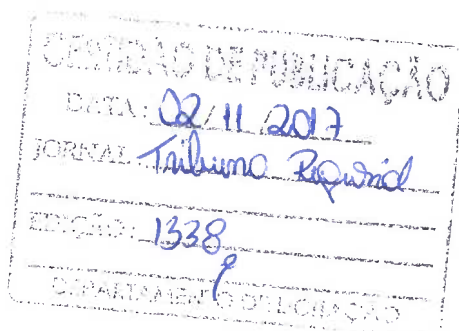 CERTIDÃO DE PUBLICAÇÃO
DATA: 02/11/2017
JORNAL: Tribuna Regional
EDIÇÃO: 1338
DEPARTAMENTO DE LICITAÇÃO